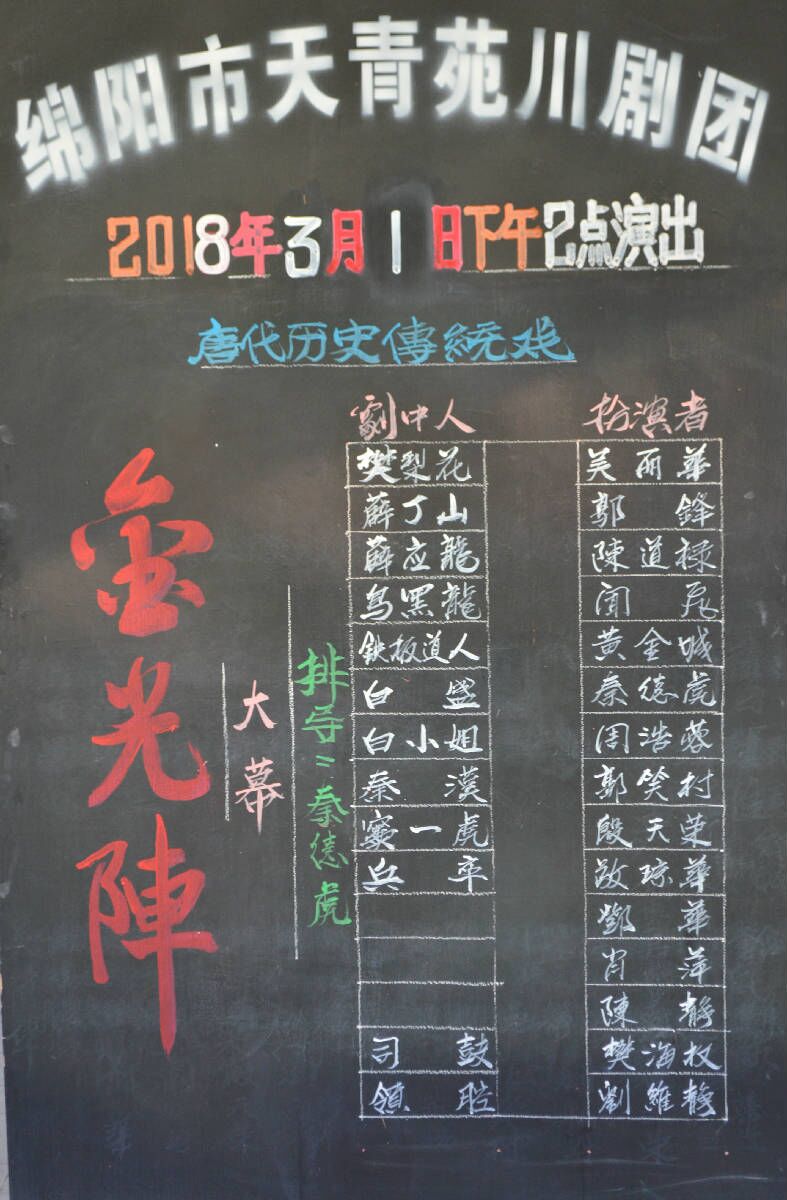 绵阳市天青苑川剧团
2018年3月1日下午2点演出
唐代历史傳統戏
金光陣
大幕
排导：秦德虎
劇中人 扮演者
樊梨花 吴丽華
薛丁山 郭鋒
薛应龍 陳道禄
乌黑龍 闻
鉄板道人 黄金城
白盛 秦德虎
白小姐 周浩蓉
秦漢 郭笑村
窦一虎 殷天荣
兵卒 敬琼華
鄧華
肖萍
陳靜
司鼓 樊海权
領腔 劉維靜